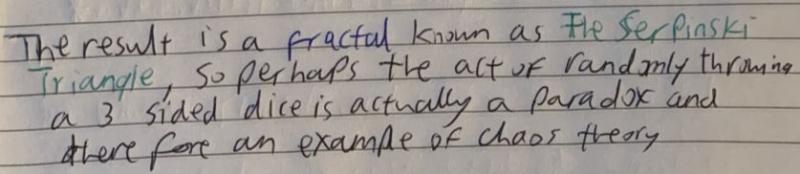 The result is a fractal known as The Serpinski
Triangle, so perhaps the act of randomly throwing
a 3 sided dice is actually a paradox and
there fore an example of chaos theory